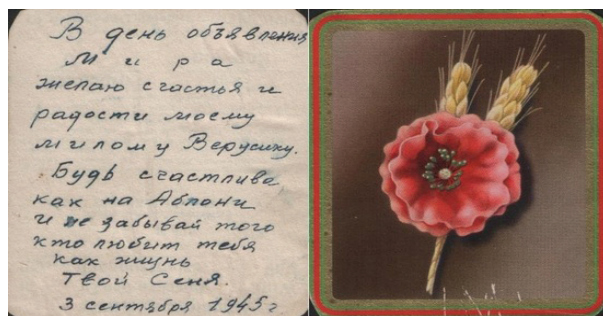 В день объявления
М и р а
желаю счастья и
радости моему
милому Верусику.
Будь счастлива
как на Аблони
и не забывай того
кто любит тебя
как жизнь
Твой Сеня.
3 сентября 1945 г